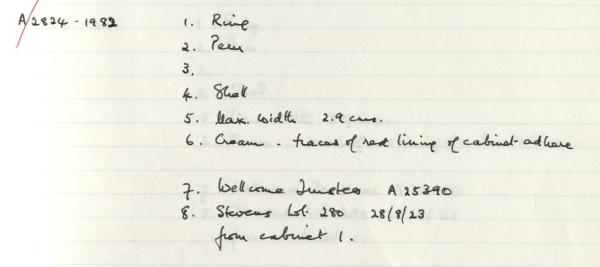 A/2824-1982 1. Ring
2. Peru
3.
4. Shell
5. Max. width 2.9 cms.
6. Cream. traces of red lining of cabinet adhere
7. Wellcome Trustees A 25390
8. Stevens Lot. 280 28/8/23
from cabinet 1.